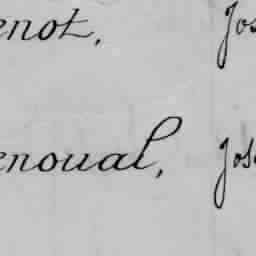 enot, Jos
enoual, Jose